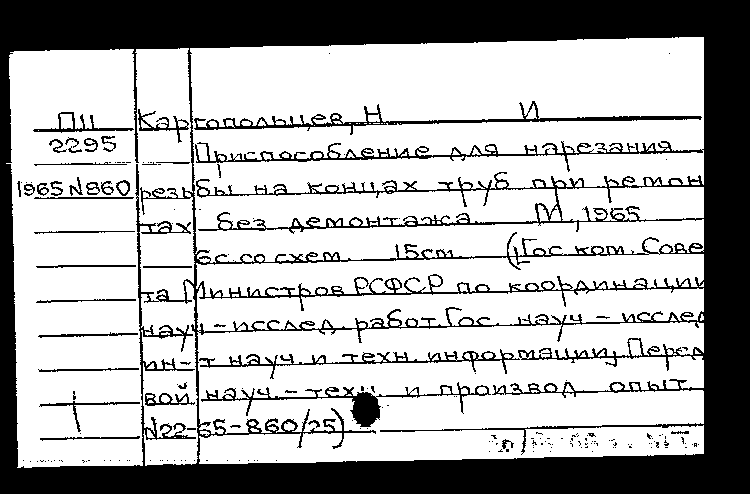 П11 Каргопольцев, Н И
2295 Приспособление для нарезания
1965 N860 резьбы на концах труб при ремон
тах без демонтажа М, 1965
6с. со схем. 15см. (Гос ком. Сове
та Министров РСФСР по координации
науч-исслед. работ. Гос. науч-исслед
ин-т науч. и техн. информации, Перед
вой науч.-техн. и производ опыт.
N22-65-860/25)